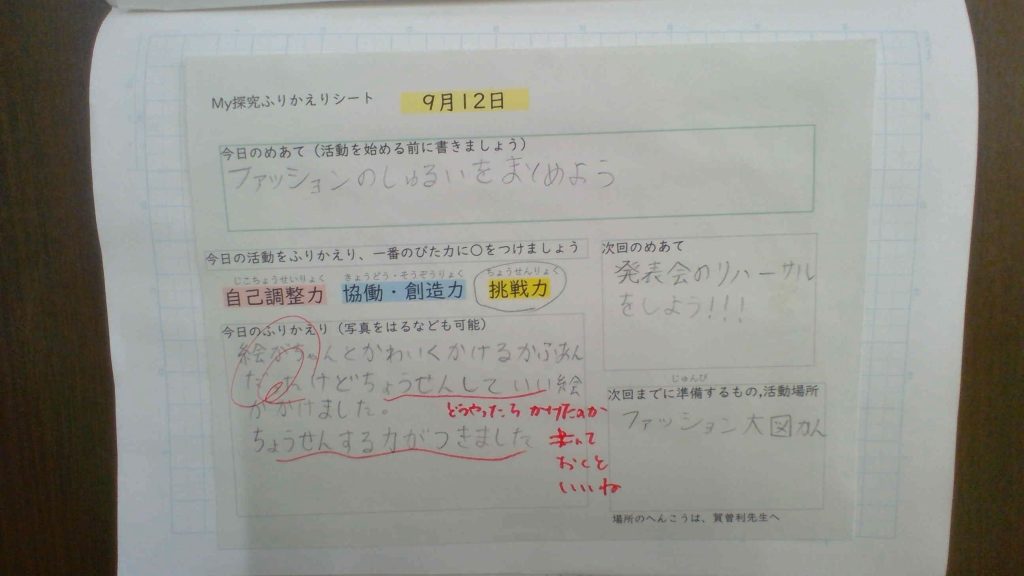 My探究ふりかえりシート
9月12日
今日のめあて（活動を始める前に書きましょう）
ファッションのしゅるいをまとめよう
今日の活動をふりかえり、一番のびた力に〇をつけましょう
じこちょうせいりょく
きょうどう・そうぞうりょく
ちょうせんりょく
自己調整力
協働・創造力
挑戦力
今日のふりかえり（写真をはるなども可能）
絵がちゃんとかわいくかけるかふあん
だったけどちょうせんしていい絵
がかけました。
ちょうせんする力がつきました
どうやったら かけたのか
書いて
おくと
いいね
次回のめあて
発表会のリハーサル
をしよう!!!
じゅんび
次回までに準備するもの,活動場所
ファッション大図かん
場所のへんこうは、賀曽利先生へ